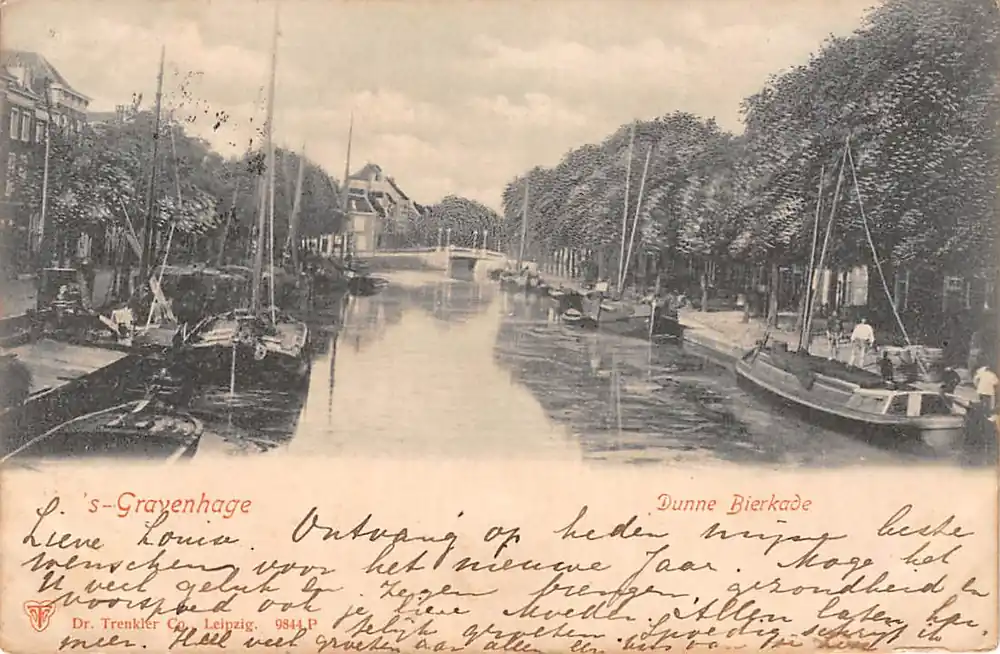 's-Gravenhage
Dunne Bierkade
Lieve Louise. Ontvang op heden mijne beste
wenschen voor het nieuwe Jaar. Moge het
U veel geluk en Zegen brengen, gezondheid en
voorspoed ook je lieve Moeder. Allen laten har-
telijk groeten. Spoedig schrijf ik
meer. Heel veel groeten aan allen en
Dr. Trenkler Co., Leipzig. 9844 P